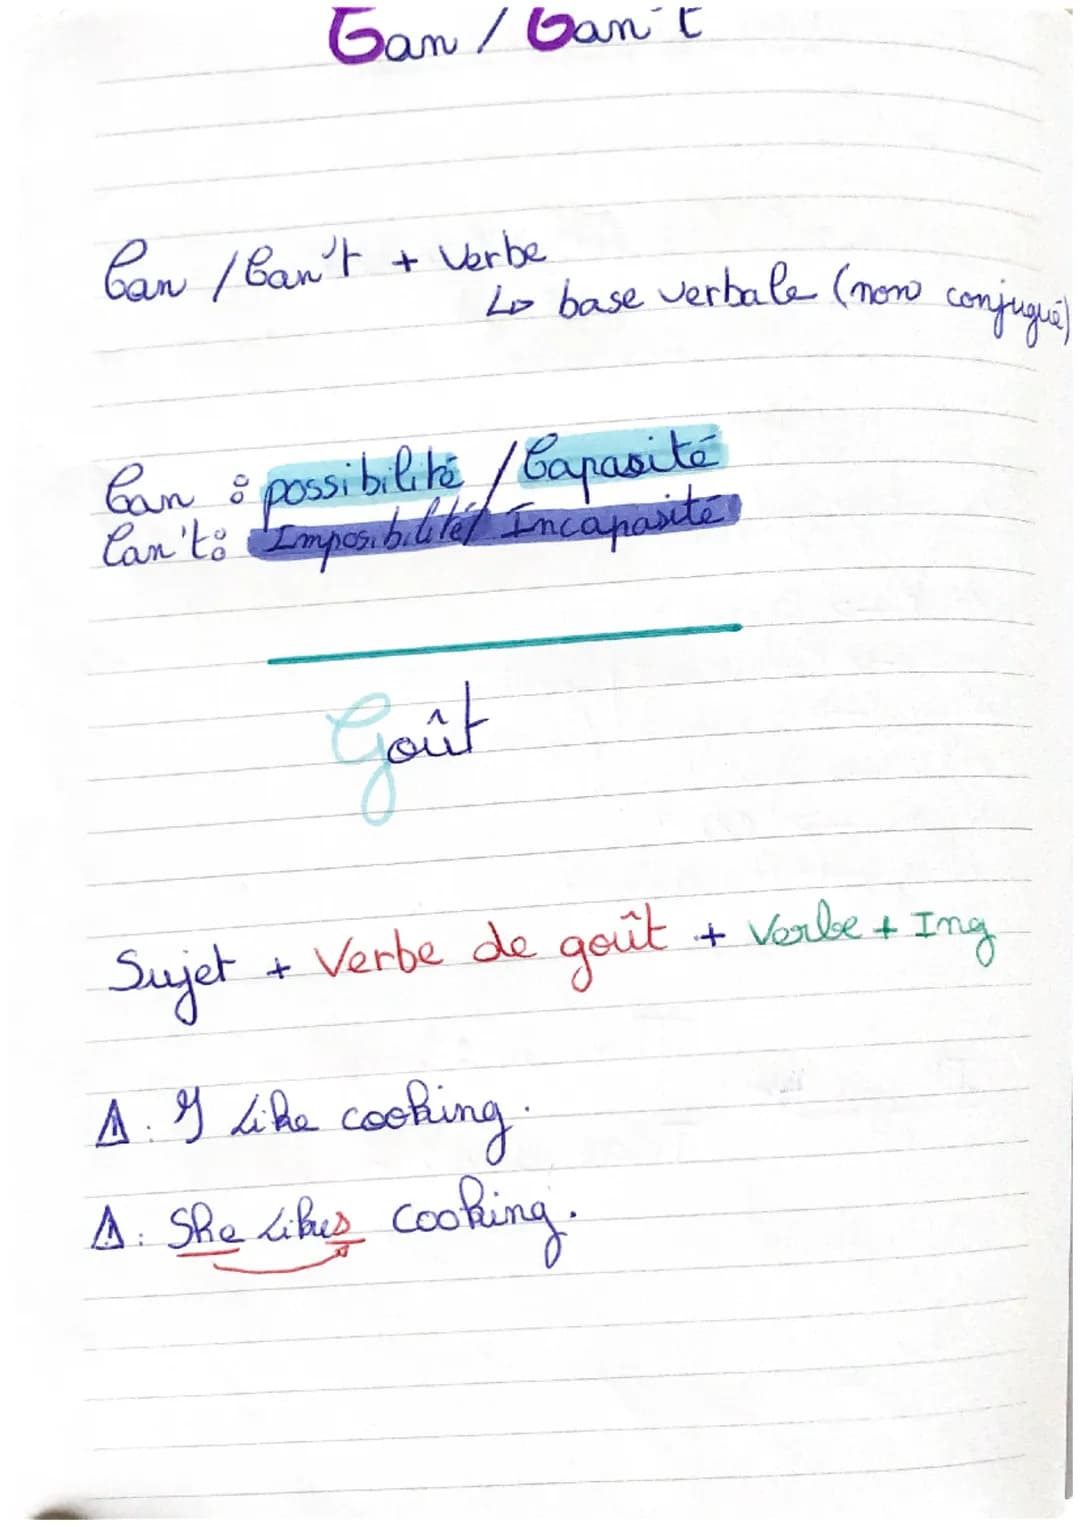 Can / Can't
Can / Can't + Verbe
↳ base verbale (non conjugué)
Can : possibilité / Capasité
Can't : Imposibilité / Incapasité
Goût
Sujet + Verbe de goût + Verbe + Ing
⚠ : I Like cooking.
⚠ : She Likes cooking.